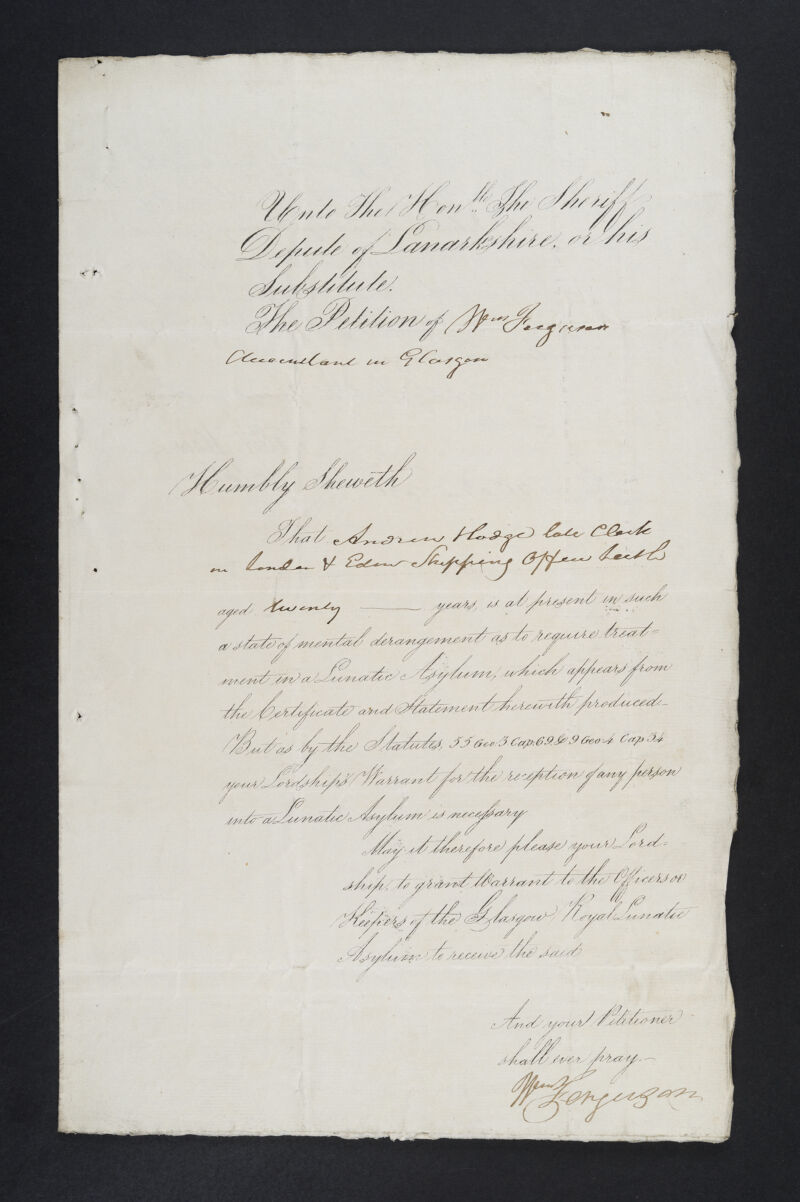 Unto The Hon.th The Sheriff
Depute of Lanarkshire, or his
Substitute.
The Petition of Wm Ferguson
Accountant in Glasgow
Humbly Sheweth
That Andrew Hodge late Clerk
in London & Edinr Shipping Office Leith
aged twenty years, is at present in such
a state of mental derangement as to require treat=
ment in a Lunatic Asylum, which appears from
the Certificate and Statement herewith produced.
But as by the Statutes, 55 Geo 3 Cap. 69 & 9 Geo 4 Cap. 34
your Lordship's Warrant for the reception of any person
into a Lunatic Asylum is necessary
May it therefore please your Lord=
ship, to grant Warrant to the Officers or
Keepers of the Glasgow Royal Lunatic
Asylum to receive the said
And your Petitioner
shall ever pray.—
Wm Ferguson